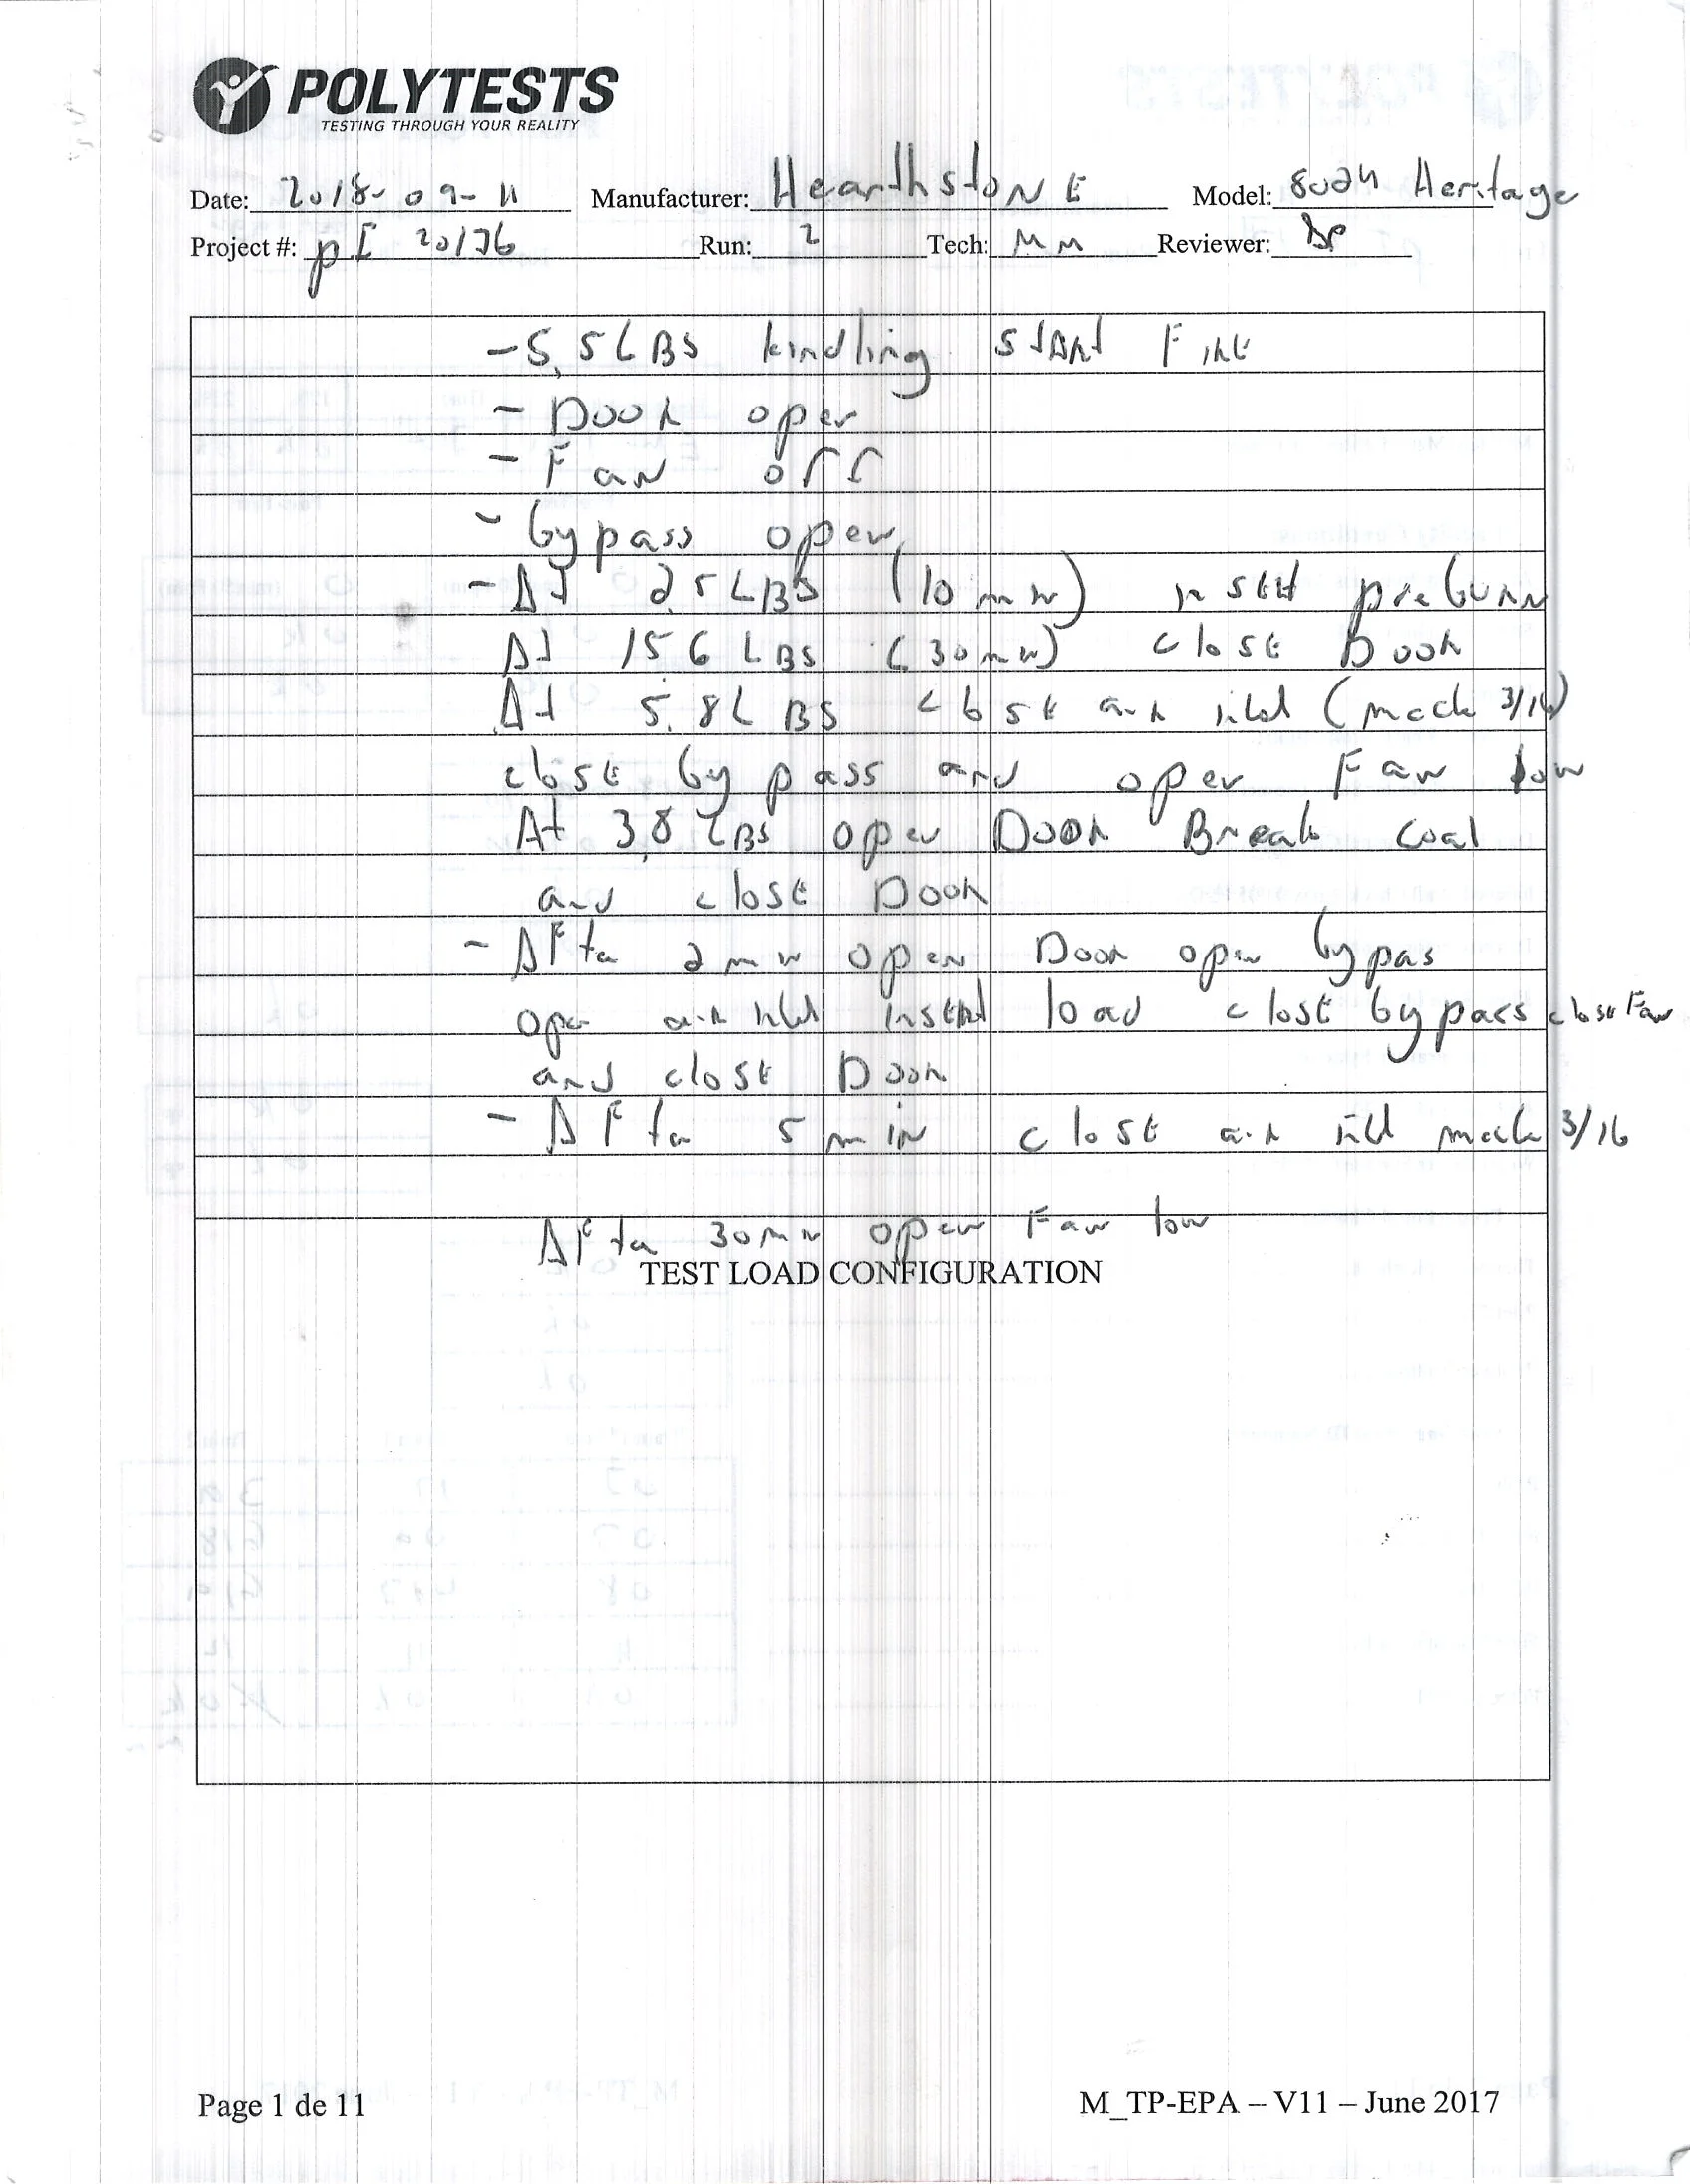 POLYTESTS
TESTING THROUGH YOUR REALITY
Date: 2018-09-11 Manufacturer: HearthstoNE Model: 8024 Heritage
Project #: pI 20176 Run: 2 Tech: MM Reviewer:
- 5,5 LBS kindling start FirE
- Door open
- Fan off
- bypass open
- At 2.5 LBS (10 min) insert preburn
At 15.6 LBS (30 min) closE Door
At 5.8 LBS closE air inlet (mech 3/16)
closE bypass and open Fan low
At 3,8 LBS open Door Break coal
and closE Door
- After 2 min open Door open bypas
open air inlet insert load closE bypass closE Fan
and closE Door
- After 5 min closE air inlet mech 3/16
After 30 min open Fan low
TEST LOAD CONFIGURATION
Page 1 de 11 M_TP-EPA – V11 – June 2017